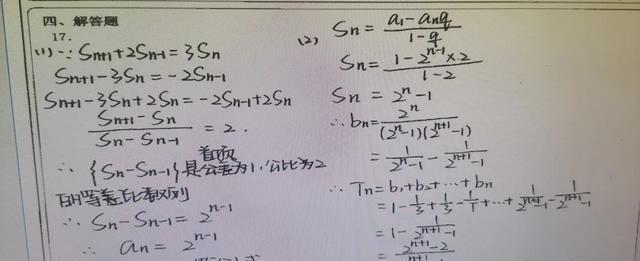 四、解答题
17.
(1) ∵ Sn+1+2Sn-1=3Sn
Sn+1-3Sn=-2Sn-1
Sn+1-3Sn+2Sn=-2Sn-1+2Sn
(Sn+1-Sn)/(Sn-Sn-1)=2.
∴ {Sn-Sn-1}是首项为1,公比为2
的等比数列
∴ Sn-Sn-1=2^(n-1)
∴ an=2^(n-1)
(2) Sn=(a1-anq)/(1-q)
Sn=(1-2^(n-1)×2)/(1-2)
Sn=2^n-1
∴ bn=2^n/((2^n-1)(2^(n+1)-1))
=1/(2^n-1)-1/(2^(n+1)-1)
∴ Tn=b1+b2+…+bn
=1-1/3+1/3-1/7+…+1/(2^n-1)-1/(2^(n+1)-1)
=1-1/(2^(n+1)-1)